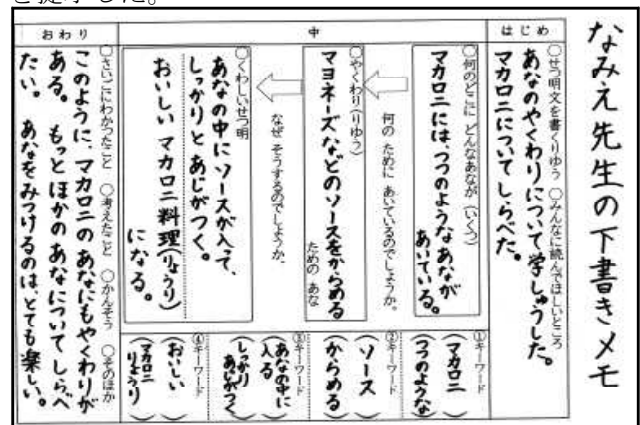 を提示した。
なみえ先生の下書きメモ
はじめ
○せつ明文を書くりゆう ○みんなに読んでほしいところ
あなのやくわりについて学しゅうした。
マカロニについてしらべた。
中
○何のどこに どんなあなが(いくつ)
マカロニには、つつのようなあなが
あいている。
何の ために あいているのでしょうか。
○やくわり(りゆう)
マヨネーズなどのソースをからめる
ための あな
なぜ そうするのでしょうか、
○くわしいせつ明
あなの中にソースが入って、
しっかりと あじがつく。
おいしい マカロニ料理(りょうり)
になる。
①キーワード
(マカロニ)
(つつのような)
②キーワード
(ソース)
(からめる)
③キーワード
(あなの中に
入る)
(しっかり
あじがつく)
④キーワード
(おいしい)
(マカロニ
りょうり)
おわり
○さいごにわかったこと ○考えたこと ○かんそう ○そのほか
このように、マカロニのあなにもやくわりが
ある。 もっとほかのあなについてしらべ
たい。 あなをみつけるのは、とても楽しい。